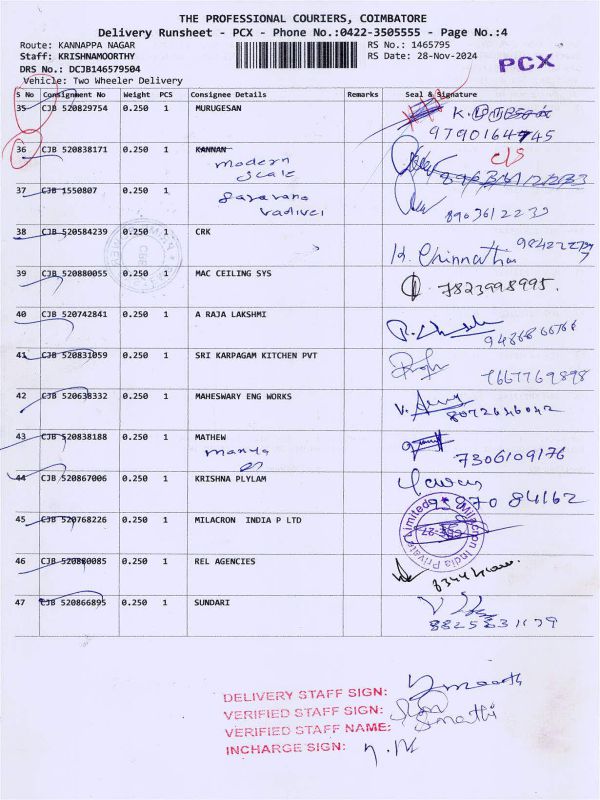 THE PROFESSIONAL COURIERS, COIMBATORE
Delivery Runsheet - PCX - Phone No.:0422-3505555 - Page No.:4
Route: KANNAPPA NAGAR
Staff: KRISHNAMOORTHY
DRS No.: DCJB146579504
Vehicle: Two Wheeler Delivery
RS No.: 1465795
RS Date: 28-Nov-2024
PCX
S No Consignment No Weight PCS Consignee Details Remarks Seal & Signature
35 CJB 520829754 0.250 1 MURUGESAN
9790164745
36 CJB 520838171 0.250 1 KANNAN
modern
scale
c/s
37 CJB 1550807 0.250 1
saravana
vadivel
38 CJB 520584239 0.250 1 CRK
K. Chinnathu
39 CJB 520880055 0.250 1 MAC CEILING SYS
7823998995.
40 CJB 520742841 0.250 1 A RAJA LAKSHMI
41 CJB 520831059 0.250 1 SRI KARPAGAM KITCHEN PVT
7667769898
42 CJB 520638332 0.250 1 MAHESWARY ENG WORKS
8072646042
43 CJB 520838188 0.250 1 MATHEW
7306109176
44 CJB 520867006 0.250 1 KRISHNA PLYLAM
93870 84162
45 CJB 520768226 0.250 1 MILACRON INDIA P LTD
Milacron India Private Limited
46 CJB 520880085 0.250 1 REL AGENCIES
47 CJB 520866895 0.250 1 SUNDARI
DELIVERY STAFF SIGN:
VERIFIED STAFF SIGN:
VERIFIED STAFF NAME:
INCHARGE SIGN: